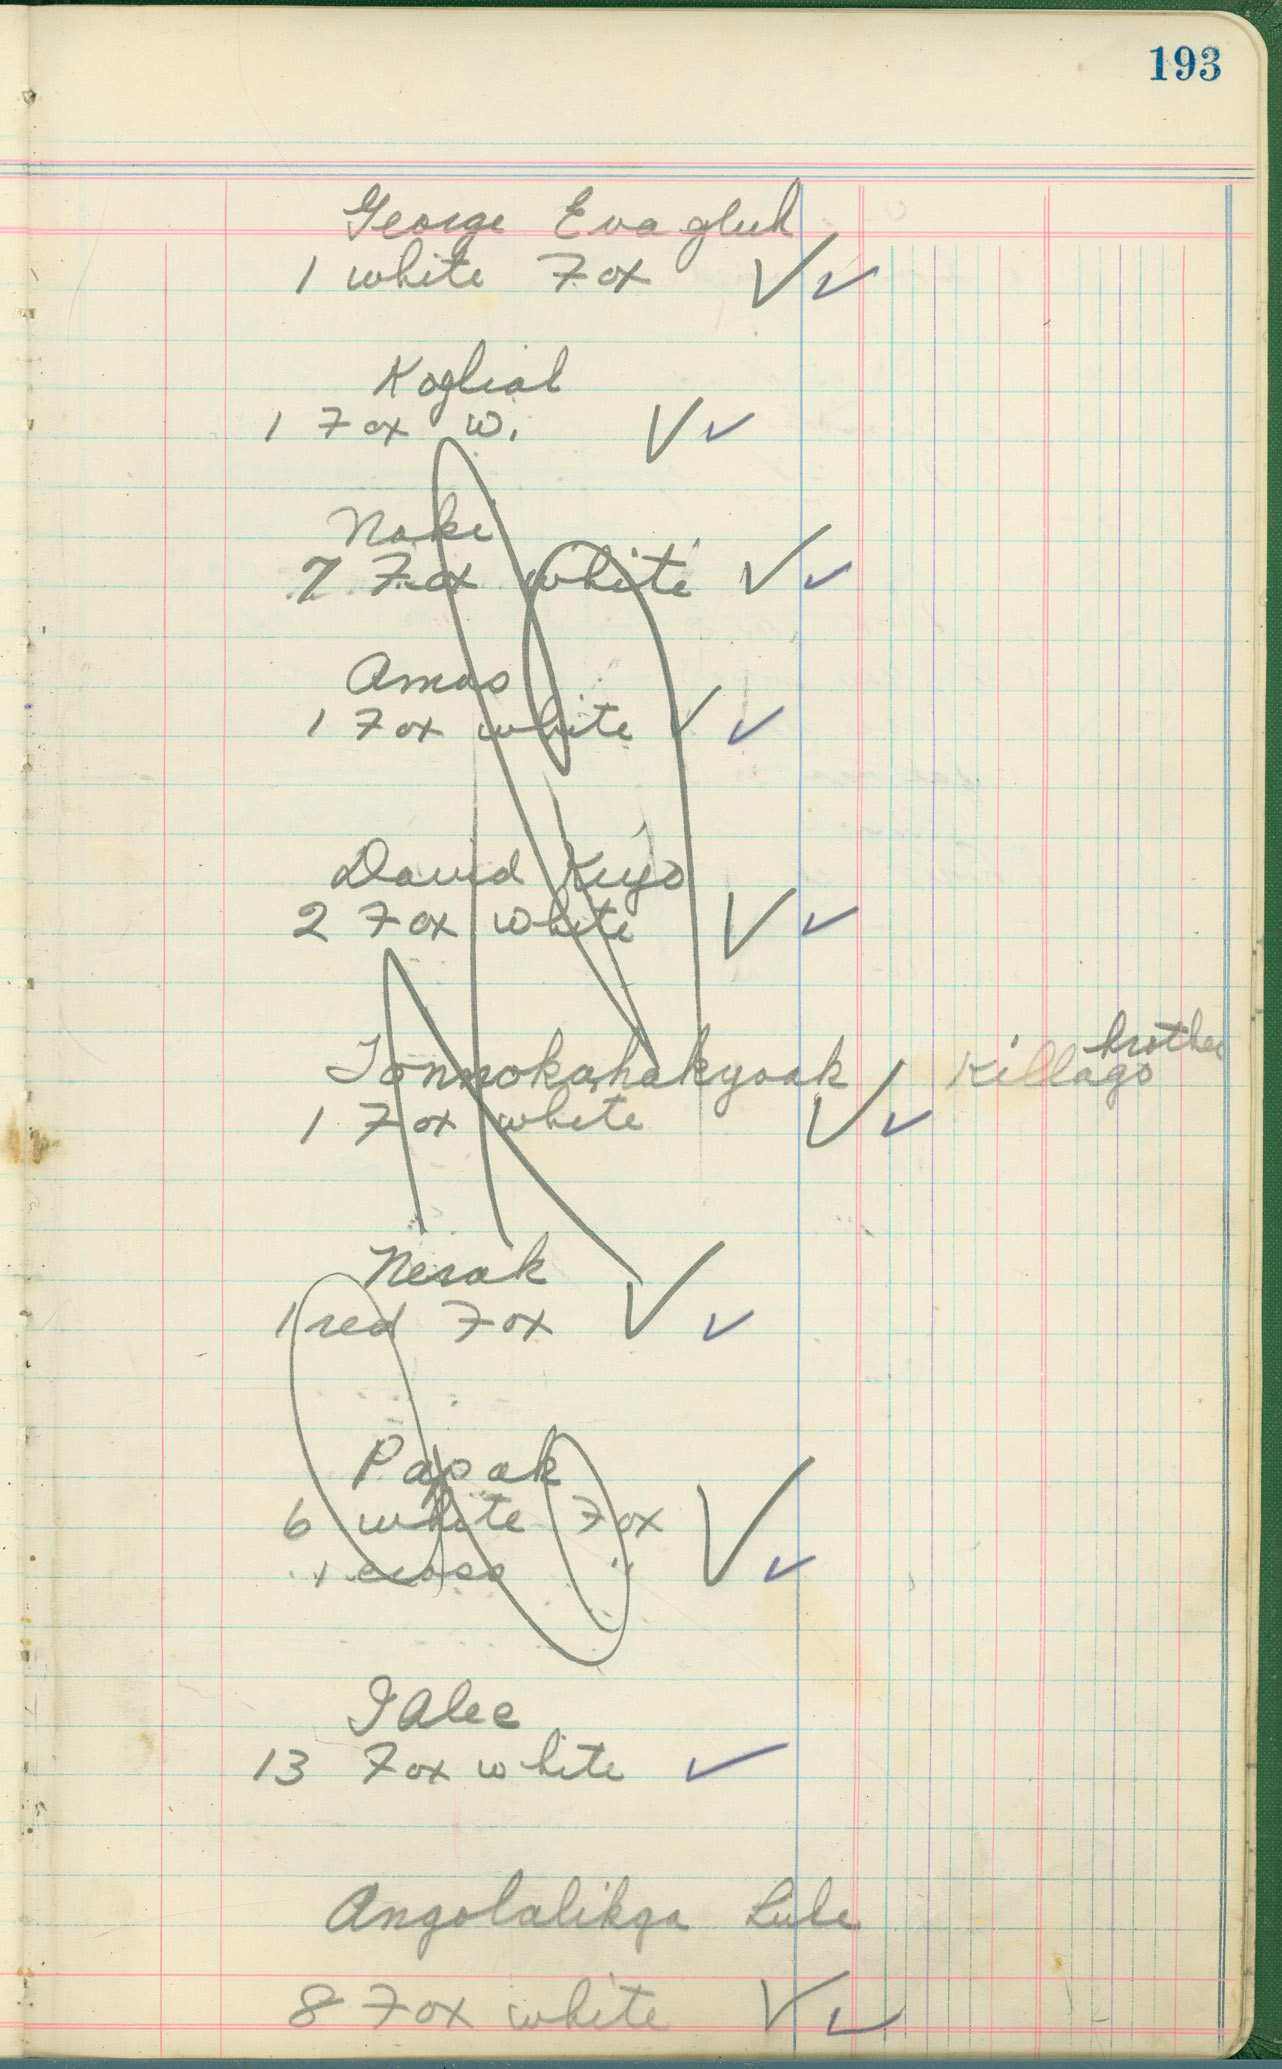 193
George Evagluk
1 white Fox ✓✓
Koglial
1 Fox W. ✓✓
Naki
7 Fox white ✓✓
Amos
1 Fox white ✓✓
David Kuyo
2 Fox white ✓✓
Tonnokahakyoak Killago brother
1 Fox white ✓✓
Nerak
1 red Fox ✓✓
Papak
6 white Fox ✓
1 cross " ✓
I Alec
13 Fox white ✓
Angolalikga Lule
8 Fox white ✓✓